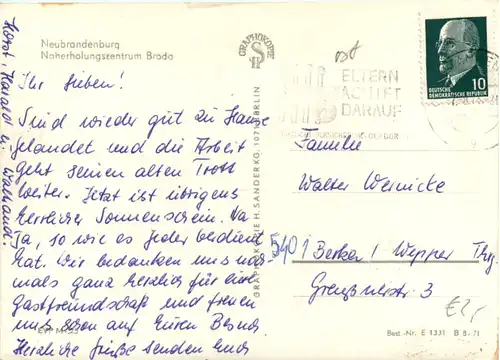 Neubrandenburg
Naherholungszentrum Broda
Ihr Lieben!
Sind wieder gut zu Hause
gelandet und die Arbeit
geht seinen alten Trott
weiter. Jetzt ist übrigens
herrlicher Sonnenschein. Na
ja, so wie es jeder verdient
hat. Wir bedanken uns noch-
mals ganz herzlich für Eure
Gastfreundschaft und freuen
uns schon auf Euren Besuch.
Herzliche Grüße senden Euch
Horst, Harald u. Waltraud.
GRAPHOKOPIE
SH
GRAPHOKOPIE H. SANDER KG, 1071 BERLIN
ELTERN
ACHTET
DARAUF
DEUTSCHE
DEMOKRATISCHE REPUBLIK
10
Familie
Walter Wernicke
5401 Berka / Wipper Thg.
3
Best.-Nr. E 1331 B 8-71